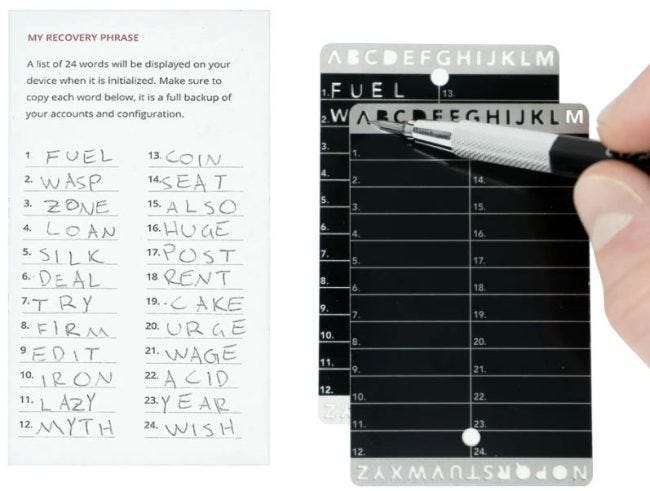 MY RECOVERY PHRASE
A list of 24 words will be displayed on your
device when it is initialized. Make sure to
copy each word below, it is a full backup of
your accounts and configuration.
1. FUEL
2. WASP
3. ZONE
4. LOAN
5. SILK
6. DEAL
7. TRY
8. FIRM
9. EDIT
10. IRON
11. LAZY
12. MYTH
13. COIN
14. SEAT
15. ALSO
16. HUGE
17. POST
18. RENT
19. CAKE
20. URGE
21. WAGE
22. ACID
23. YEAR
24. WISH
ABCDEFGHIJKLM
1. FUEL
13.
2. W
3.
4.
5.
6.
7.
8.
9.
10.
11.
12.
ZY
ABCDEFGHIJKLM
1.
2.
3.
4.
5.
6.
7.
8.
9.
10.
11.
12.
14.
15.
16.
17.
18.
19.
20.
21.
22.
23.
24.
NOPQRSTUVWXYZ